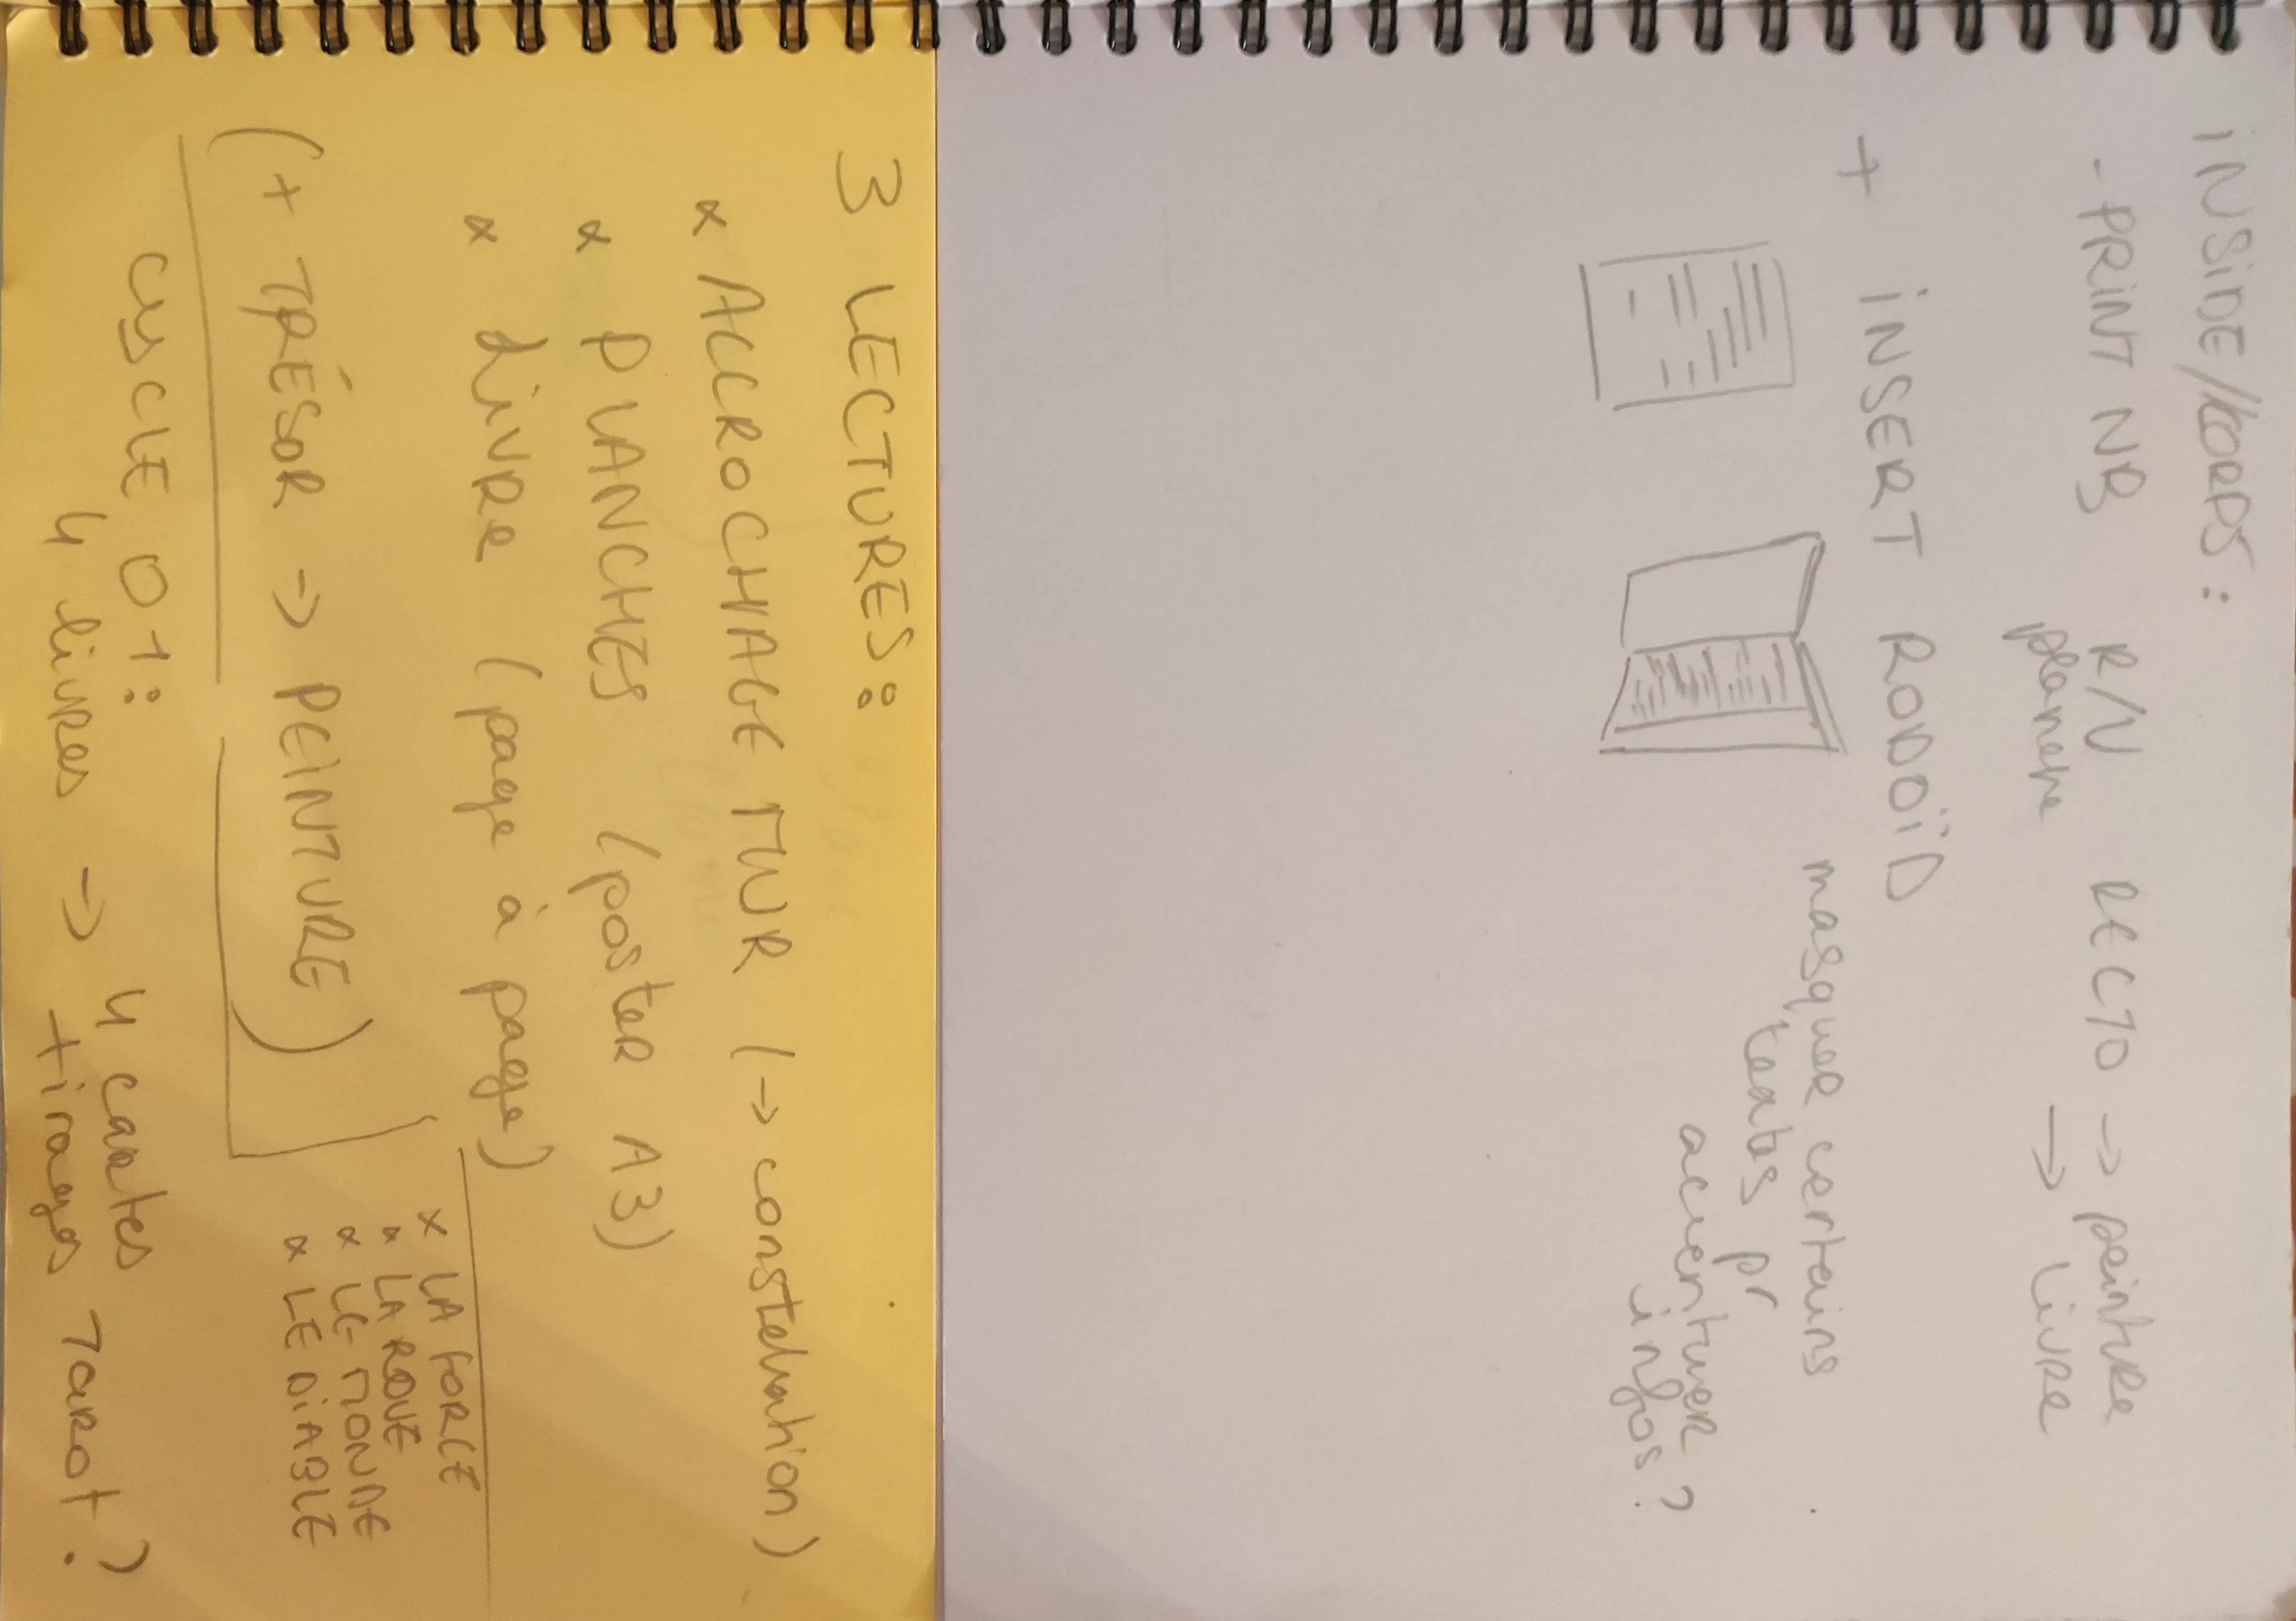 INSIDE/KORPS :
- PRINT NB R/V RECTO → peinture
planche → Livre
+ INSERT RODOÏD
masquer certains
textes pr
accentuer
infos ?
3 LECTURES :
x ACCROCHAGE MUR (→ constellation)
x PLANCHES (poster A3)
x Livre (page à page)
(+ TRÉSOR → PEINTURE)
x LA FORCE
x LA ROUE
x LE MONDE
x LE DIABLE
CYCLE 01 :
4 livres → 4 cartes
tirages Tarot ?